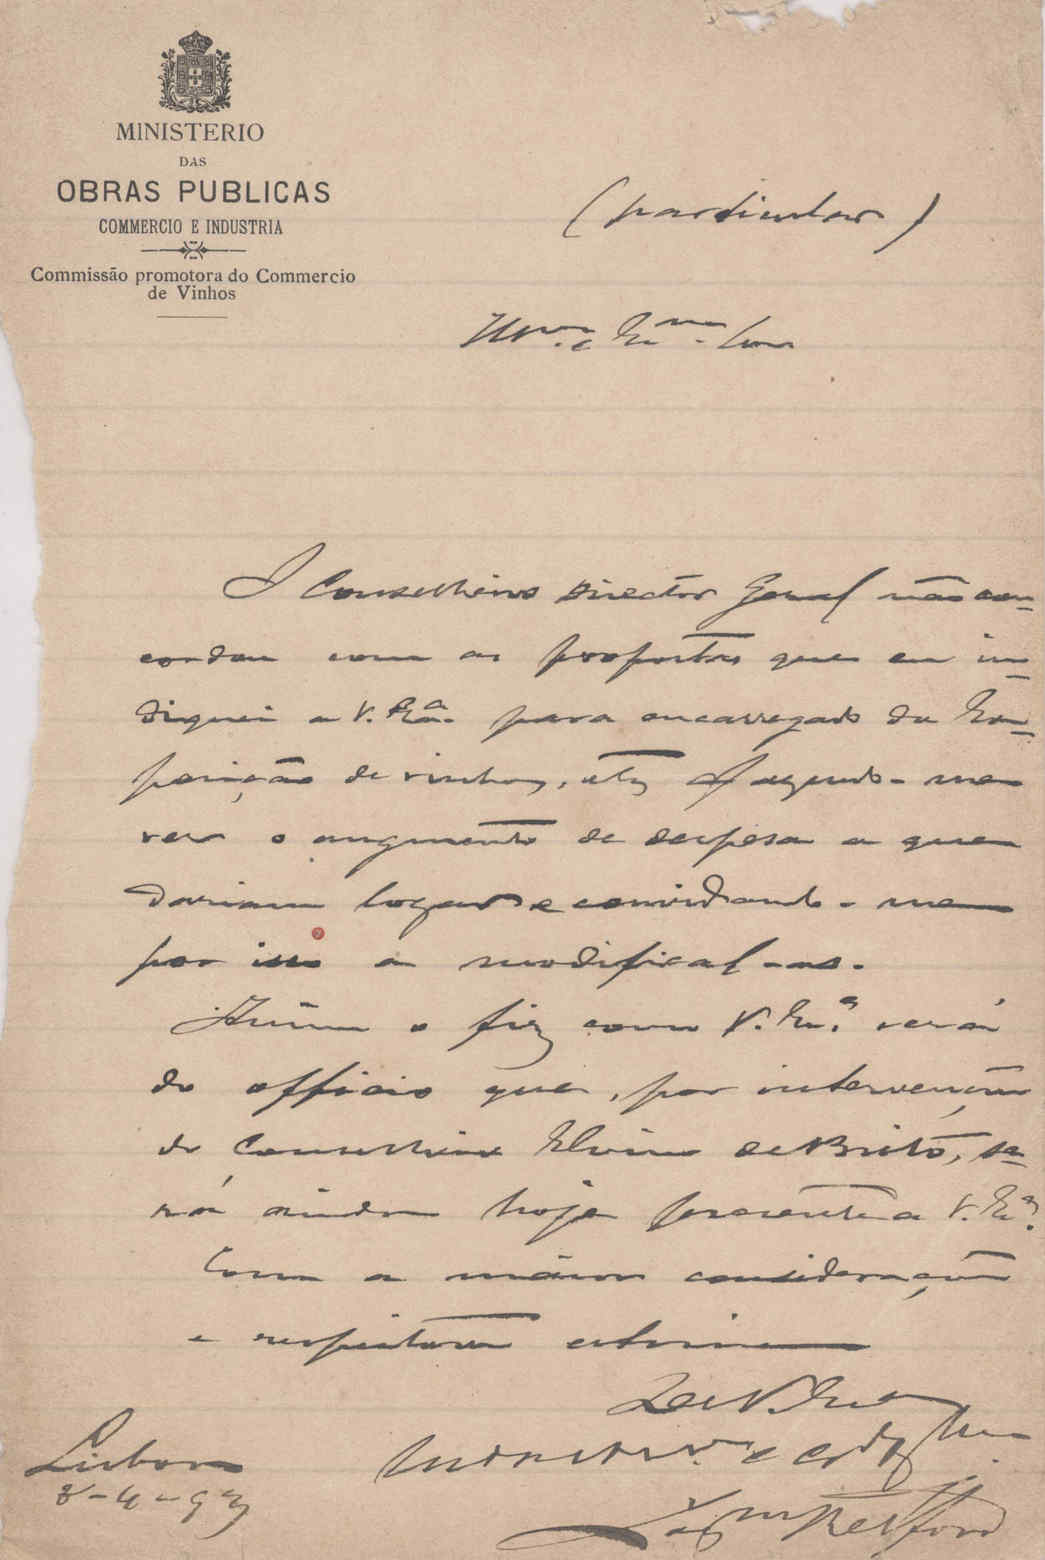 MINISTERIO
DAS
OBRAS PUBLICAS
COMMERCIO E INDUSTRIA
Commissão promotora do Commercio
de Vinhos
(particular)
Illmo. e Exmo. Snr
O Conselheiro Director Geral não con-
cordou com as propostas que eu in-
diquei a V. Exa. para encarregado da Ex-
posição de vinhos, etc, fazendo-me
ver o augmento de despesa a que
dariam logar e convidando-me
por isso a modifical-as.
Assim o fiz como V. Exa. verá
do officio que, por intervenção
do Conselheiro Elvino de Brito, se-
rá ainda hoje presente a V. Exa.
Com a maior consideração
e respeitosa estima
De V. Exa
Lisboa
8-4-93